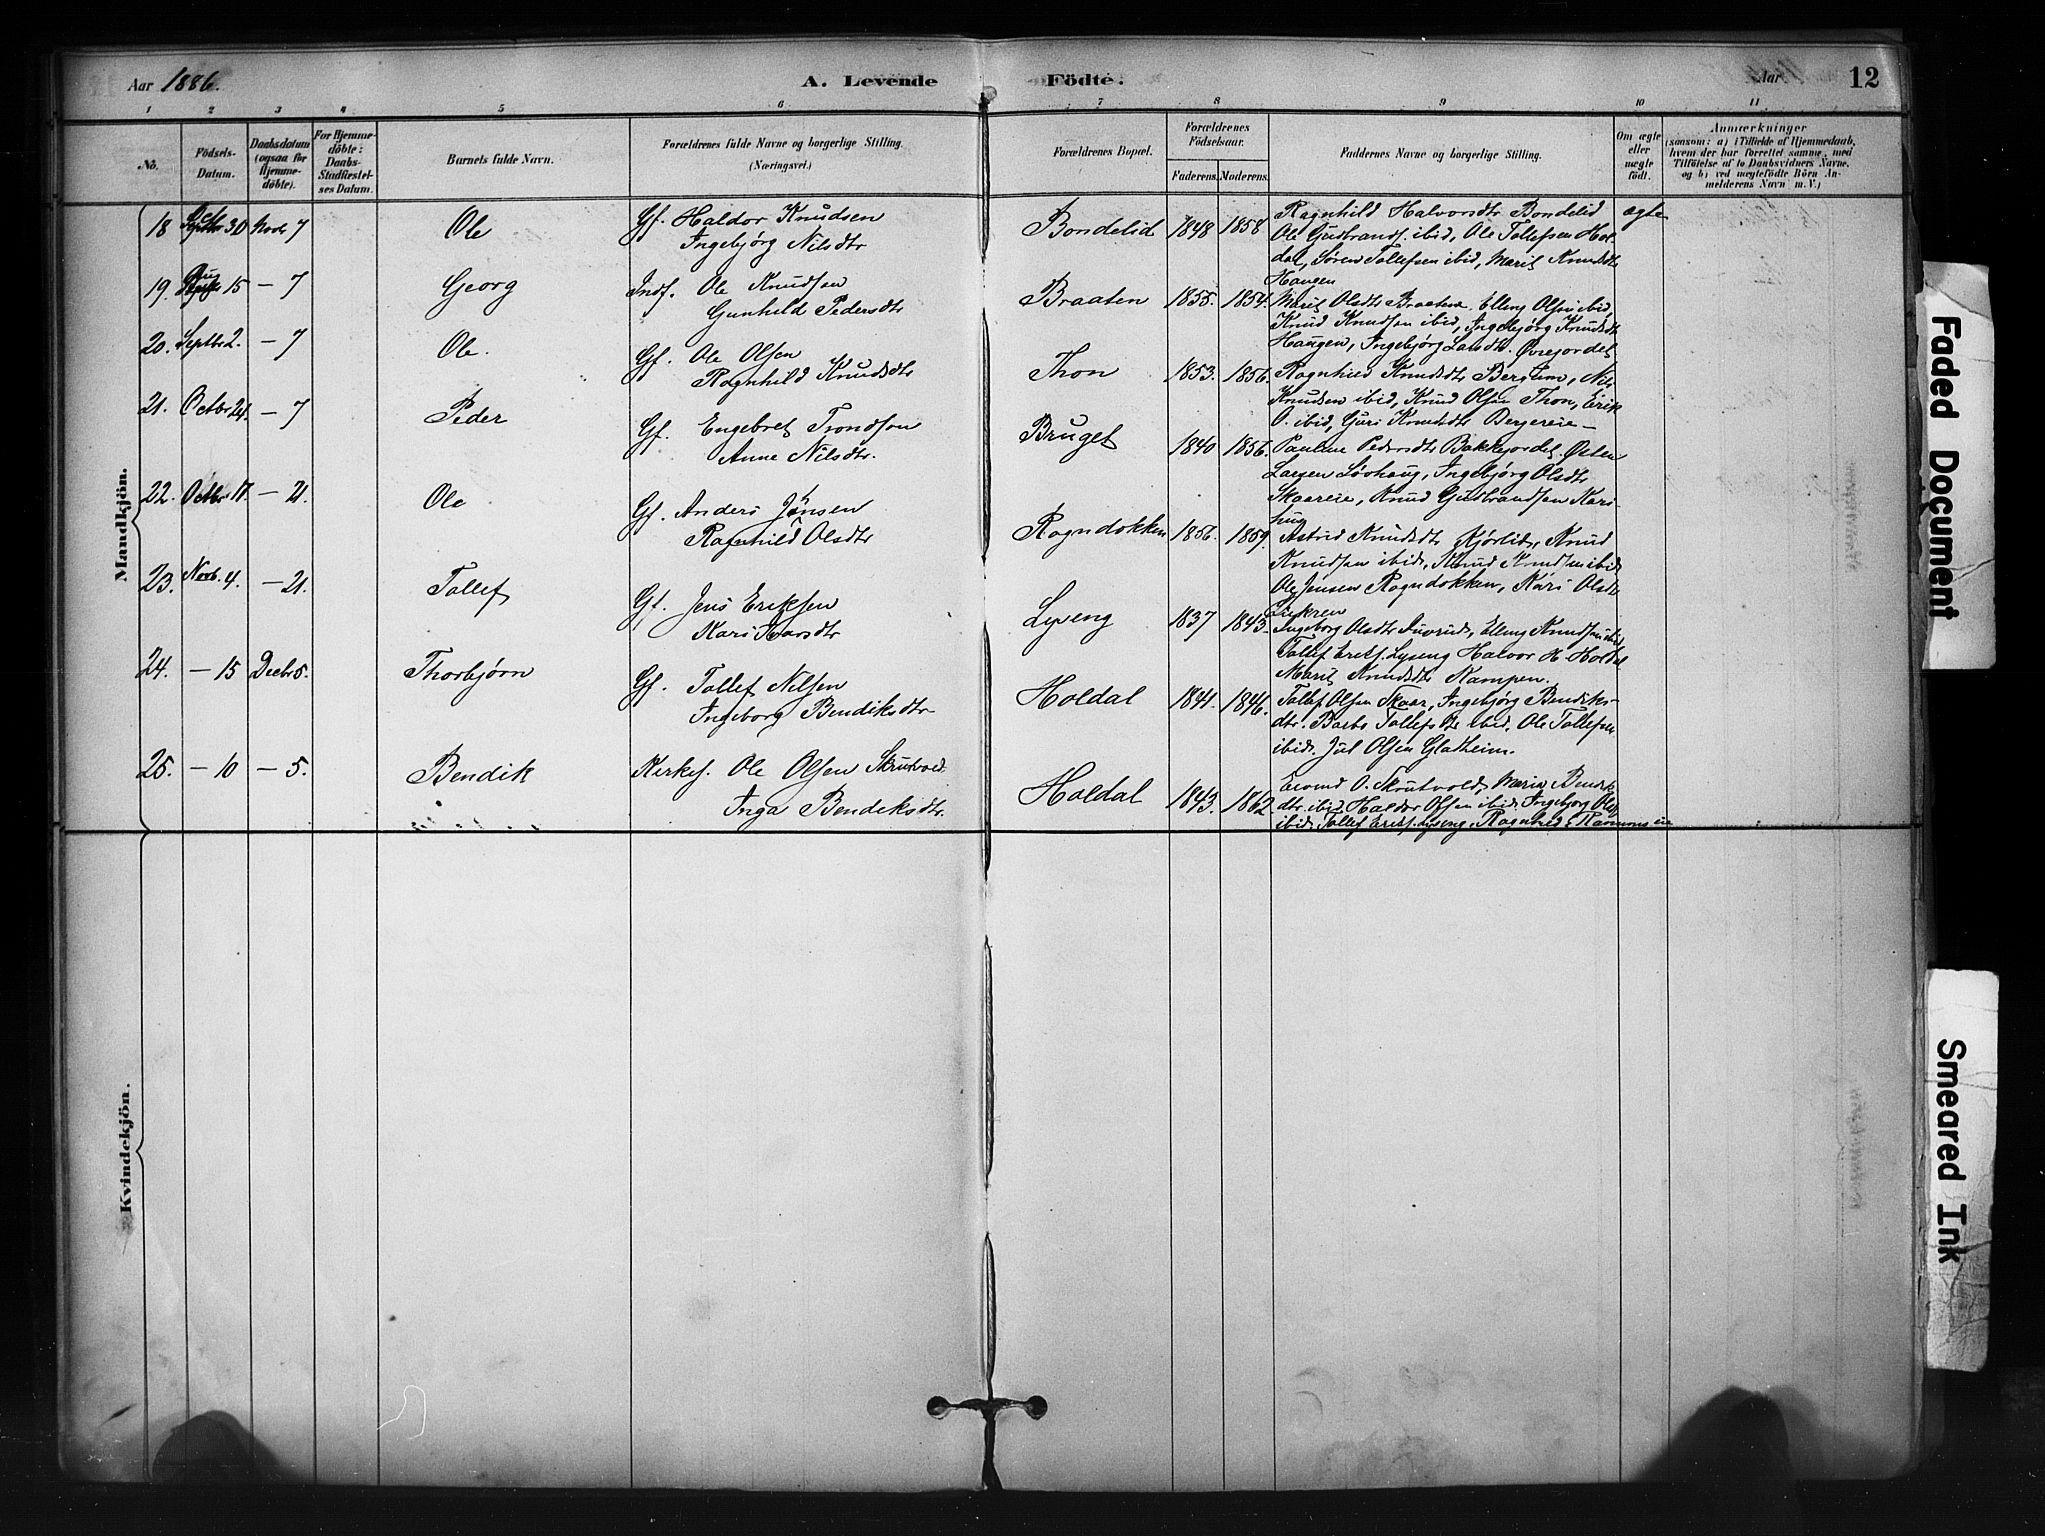 Aar 1886.
A. Levende
Födte.
Aar
12
1 2 3 4 5 6 7 8 9 10 11
No.
Födsels-
Datum.
Daabsdatum
(ogsaa for
Hjemme-
döbte).
For Hjemme-
döbte:
Daabs-
Stadfæstel-
ses Datum.
Barnets fulde Navn.
Forældrenes fulde Navne og borgerlige Stilling.
(Næringsvei.)
Forældrenes Bopæl.
Forældrenes
Födselsaar.
Faderens. Moderens.
Faddernes Navne og borgerlige Stilling.
Om ægte
eller
uægte
födt.
Anmærkninger
(saasom: a) i Tilfælde af Hjemmedaab,
hvem der har forrettet samme, med
Tilföielse af to Daabsvidners Navne,
og b) ved uegtefödte Börn An-
melderens Navn m. V.)
Mandkjön.
18 30 Novb 7 Ole Gf. Haldor Knudsen
Ingebjørg Nilsdtr
Bondelid 1848 1858 Ragnhild Halvorsdtr Bondelid ægte
Ole Gudbrands. ibid, Ole Tollefsen Hol-
dal, Søren Tollefsen ibid, Marit Knudsdtr
Haugen
19. Aug 15 — 7 Georg Indf. Ole Knudsen
Gunhild Pedersdtr
Braaten 1855. 1854. Marit Olsdtr Braaten Elling Olsen ibid,
Knud Knudsen ibid, Ingebjørg Knudsdtr
Haugen, Ingebjørg Larsdtr. Øvrejordet
20. Septbr 2. — 7 Ole. Gf. Ole Olsen
Ragnhild Knudsdtr
Thon 1853. 1856. Ragnhild Knudsdtr Berglum, Nils
Knudsen ibid, Knud Olsen Thon, Erik
O. ibid, Guri Knudsdtr Bergereie —
21. Octbr 24. — 7 Peder Gf. Engebret Trondsen
Anne Nilsdtr.
Bruget 1840 1856. Pauline Pedersdtr Bakkejordet. Østen
Larsen Løvhaug, Ingebjørg Olsdtr
Skaareie, Knud Gudbrandsen Kari-
hug
22. Octbr 17. — 21. Ole Gf. Anders Jensen
Ragnhild Olsdtr
Rogndokken 1856. 1859. Astrid Knudsdtr Kjørlie, Knud
Knudsen ibid, Knud Knudsen ibid
Ole Jensen Rogndokken, Kari Olsdtr
23. Novb. 4. — 21. Tollef Gf. Jens Eriksen
Kari Ivarsdtr
Lyseng 1837 1843. Ingeborg Olsdtr Juvrud, Elling Knudsen ibid,
Tollef Eriks. Lyseng Halvor H. Holdal
Marit Knudsdtr Kampen.
24. — 15 Decbr 5. Thorbjørn Gf. Tollef Nilsen
Ingeborg Bendiksdtr
Holdal 1841. 1846. Tollef Olsen Skaar, Ingebjørg Bendiks-
dtr. Barbo Tollefs ibid, Ole Tollefsen
ibid. Jul Olsen Gladheim.
25. — 10 — 5. Bendik Kirkes. Ole Olsen Skrutvold
Inga Bendiksdtr.
Holdal 1843. 1862. Eivind O. Skrutvold, Maria Bendik
dtr. ibid, Haldor Olsen ibid, Ingebjørg Olsd
ibid, Tollef Eriks. Lyseng, Ragnhild
Kvindekjön.
Faded Document
Smeared Ink